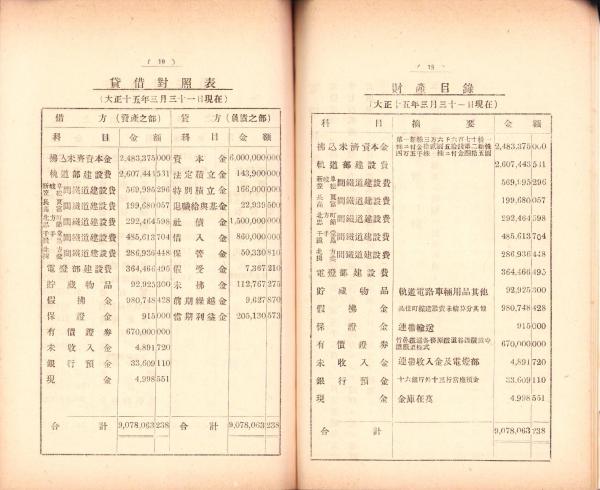 貸借對照表
(大正十五年三月三十一日現在)
借 方 (資產之部) 貸 方 (負債之部)
科 目 金 額 科 目 金 額
拂込未濟資本金 2,483,375 000 資本金 6,000,000 000
軌道部建設費 2,607,443 541 法定積立金 143,900 000
間鐵道建設費 569,195 296 特別積立金 166,000 000
間鐵道建設費 199,680 057 退職給與基金 22,939 500
間鐵道建設費 292,464 598 社債 1,500,000 000
間鐵道建設費 485,613 704 借入金 860,000 000
間鐵道建設費 286,936 448 保管金 50,330 810
電燈部建設費 364,466 495 假受金 7,367 210
貯藏物品 92,925 300 未拂金 112,767 275
假拂金 980,748 428 前期繰越金 9,627 870
保證金 915 000 當期利益金 205,130 573
有價證券 670,000 000
未收入金 4,891 720
銀行預金 33,609 110
現金 4,998 551
合計 9,078,063 238 合計 9,078,063 238
財產目錄
(大正十五年三月三十一日現在)
科 目 摘 要 金 額
拂込未濟資本金 2,483,375 000
軌道部建設費 2,607,443 541
間鐵道建設費 569,195 296
間鐵道建設費 199,680 057
間鐵道建設費 292,464 598
間鐵道建設費 485,613 704
間鐵道建設費 286,936 448
電燈部建設費 364,466 495
貯藏物品 軌道電路車輛用品其他 92,925 300
假拂金 980,748 428
保證金 連帶輸送 915 000
有價證券 670,000 000
未收入金 連帶收入金及電燈部 4,891 720
銀行預金 33,609 110
現金 金庫在高 4,998 551
合計 9,078,063 238